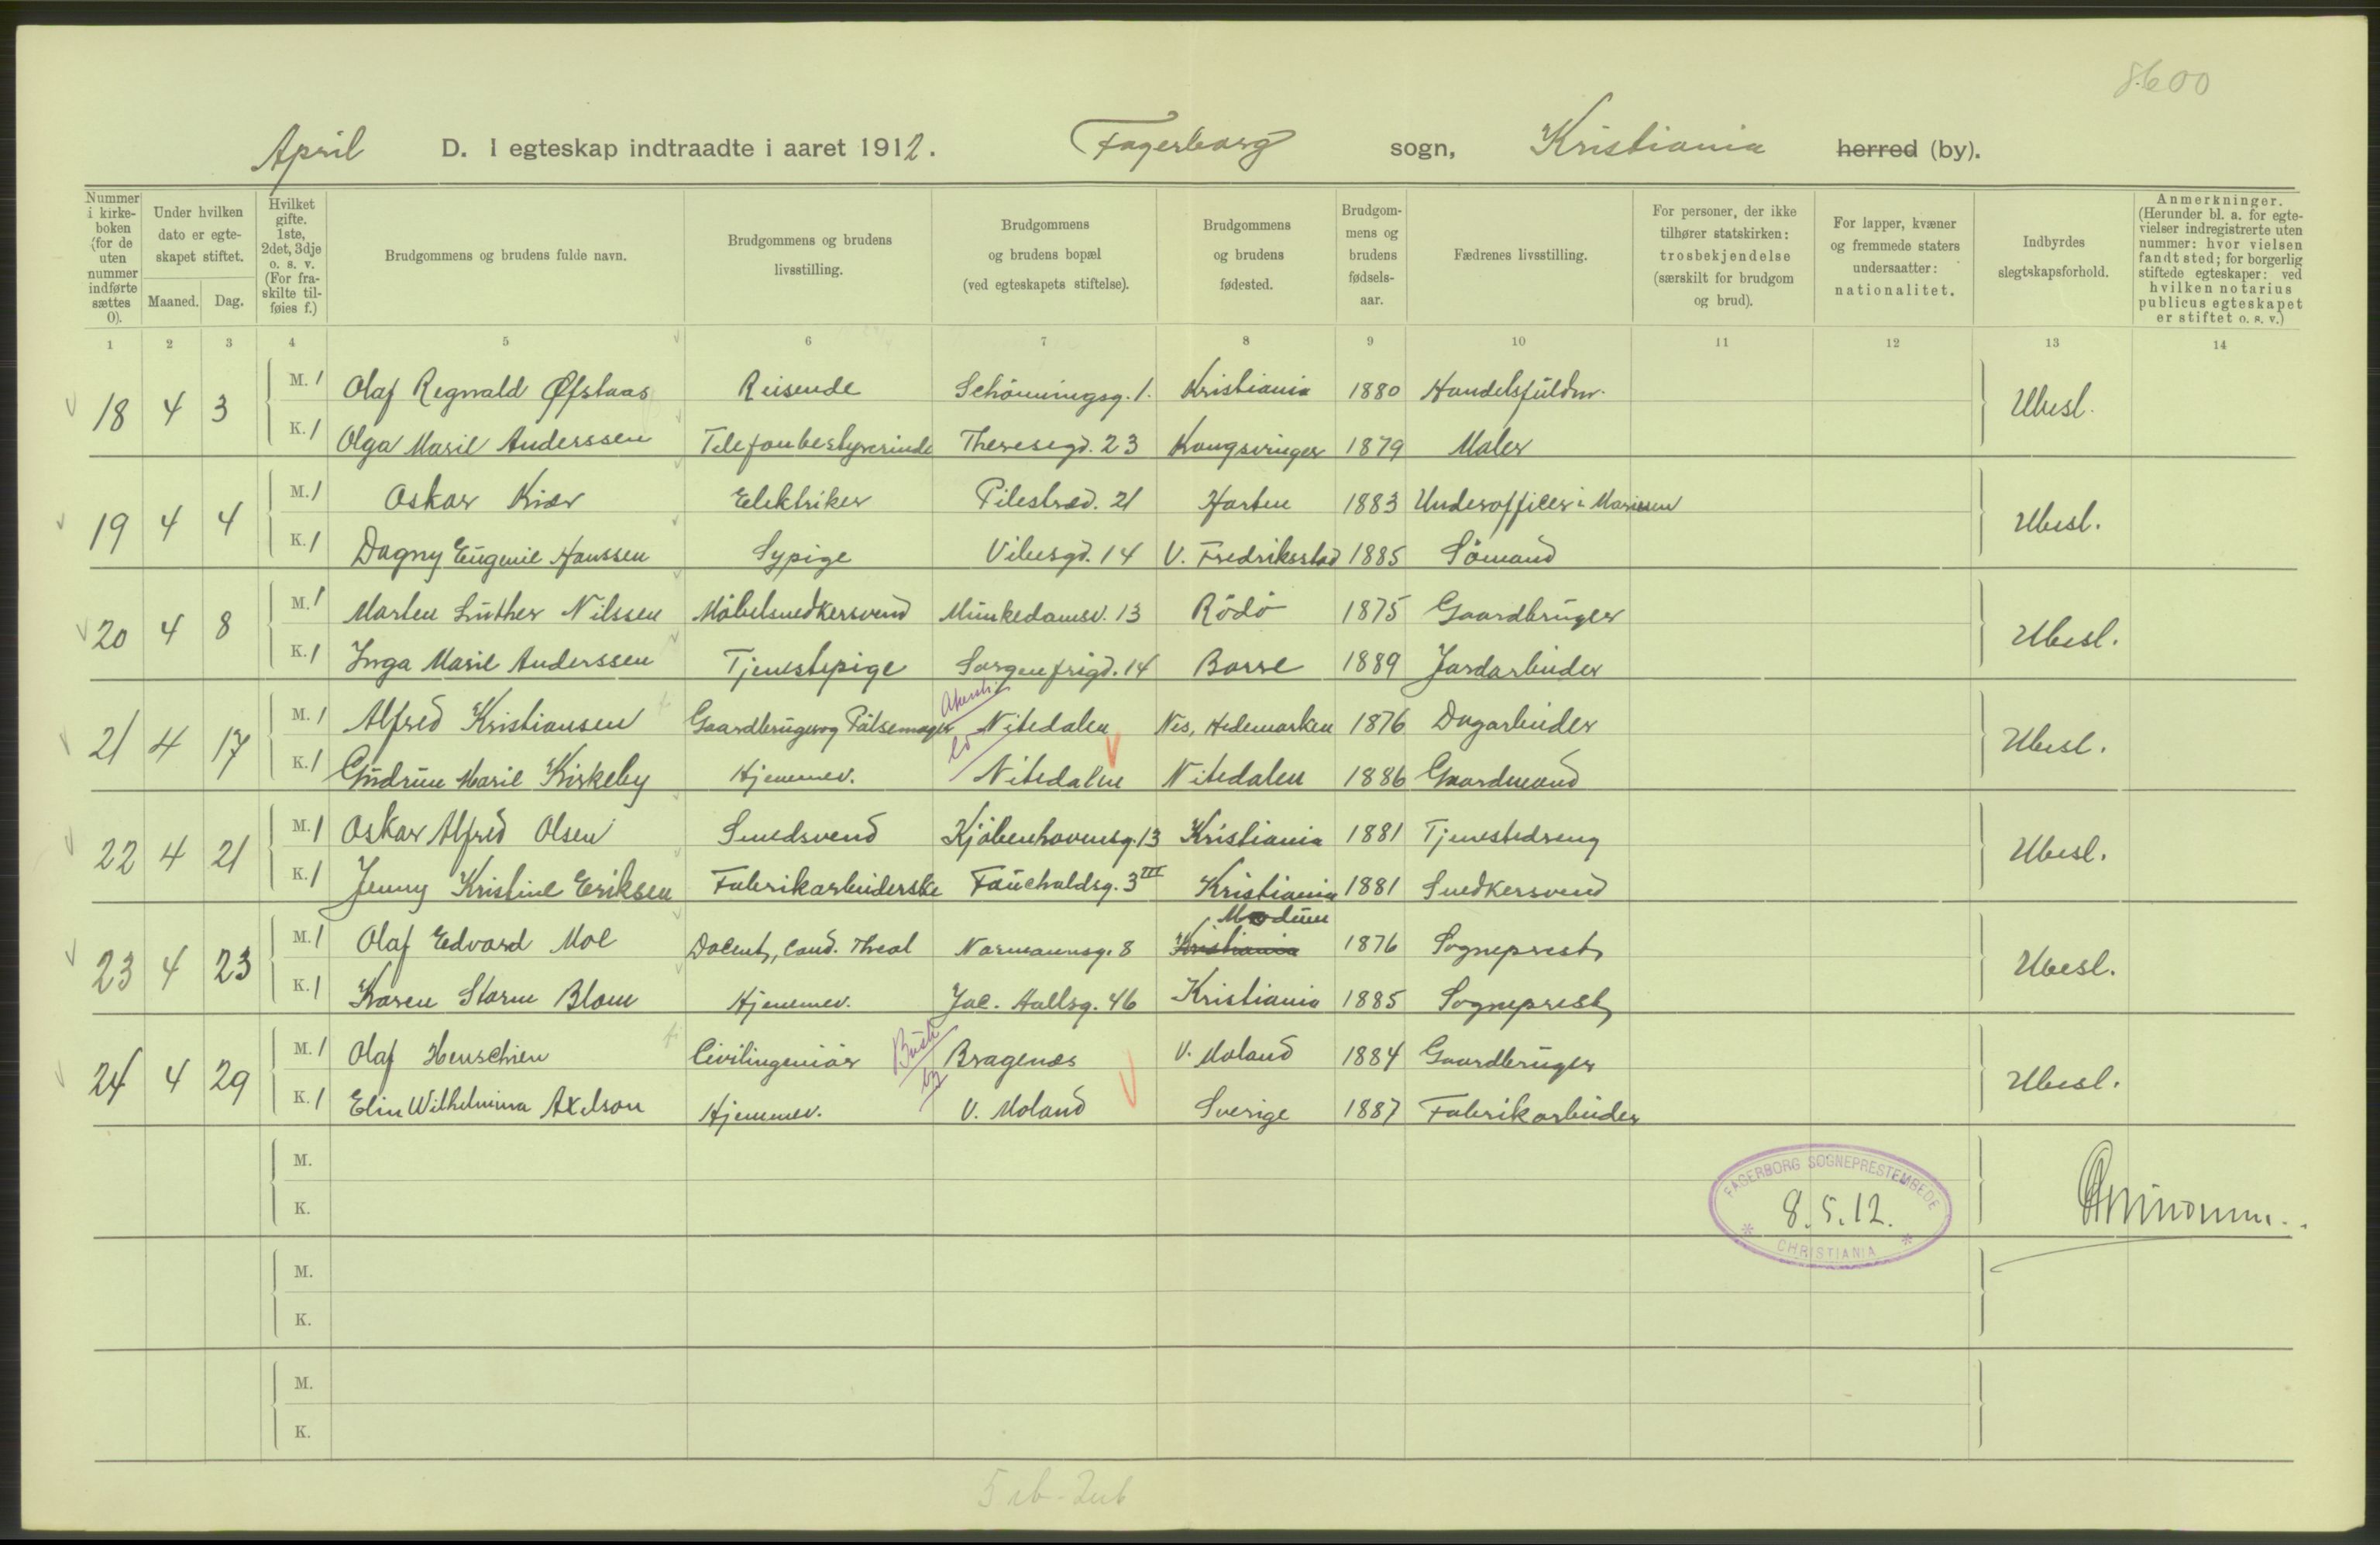 8600
April D. I egteskap indtraadte i aaret 1912. Fagerborg sogn, Kristiania herred (by).
Nummer i kirke-boken (for de uten nummer indførte sættes 0). Under hvilken dato er egte-skapet stiftet. Maaned. Dag. Hvilket gifte. 1ste, 2det, 3dje o. s. v. (For fra-skilte til-føies f.) Brudgommens og brudens fulde navn. Brudgommens og brudens livsstilling. Brudgommens og brudens bopæl (ved egteskapets stiftelse). Brudgommens og brudens fødested. Brudgom-mens og brudens fødsels-aar. Fædrenes livsstilling. For personer, der ikke tilhører statskirken: trosbekjendelse (særskilt for brudgom og brud). For lapper, kvæner og fremmede staters undersaatter: nationalitet. Indbyrdes slegtskapsforhold. Anmerkninger. (Herunder bl. a. for egte-vielser indregistrerte uten nummer: hvor vielsen fandt sted; for borgerlig stiftede egteskaper: ved hvilken notarius publicus egteskapet er stiftet o. s. v.)
1 2 3 4 5 6 7 8 9 10 11 12 13 14
18 4 3 M. 1 Olaf Regnvald Øfstaas Reisende Schönningsg. 1. Kristiania 1880 Handelsfuldm. Ubesl.
K. 1 Olga Marie Anderssen Telefonbestyrerinde Theresegd. 23 Kongsvinger 1879 Maler
19 4 4 M. 1 Oskar Kiær Elektriker Pilestræd. 21 Horten 1883 Underofficer i Marinen Ubesl.
K. 1 Dagny Eugenie Hanssen Sypige Vibesgd. 14 V. Fredriksstad 1885 Sömand
20 4 8 M. 1 Marten Luther Nilssen Möbelsnedkersvend Munkedamsv. 13 Rödö 1875 Gaardbruger Ubesl.
K. 1 Inga Marie Anderssen Tjenestepige Sorgenfrigd. 14 Borre 1889 Jordarbeider
Akersh.
21 4 17 M. 1 Alfred Kristiansen Gaardbruger og Pölsemager Nitedalen Nes, Hedemarken 1876 Dagarbeider Ubesl.
K. 1 Gudrun Marie Kirkeby Hjemmev. Nitedalen Nitedalen 1886 Gaardmand
22 4 21 M. 1 Oskar Alfred Olsen Smedsvend Kjöbenhavnsg. 13 Kristiania 1881 Tjenestedreng Ubesl.
K. 1 Jenny Kristine Eriksen Fabrikarbeiderske Fauchaldsg. 3 III Kristiania 1881 Snedkersvend
Modum
23 4 23 M. 1 Olaf Edvard Moe Docent, Cand. Theol Normannsg. 8 Kristiania 1876 Sogneprest Ubesl.
K. 1 Karen Storm Blom Hjemmev. Jac. Aallsg. 46 Kristiania 1885 Sogneprest
Busk
24 4 29 M. 1 Olaf Henschien Civilingeniör by Bragenæs V. Moland 1884 Gaardbruger Ubesl.
K. 1 Elin Wilhelmina Axelson Hjemmev. V. Moland Sverige 1887 Fabrikarbeider
M.
K.
FAGERBORG SOGNEPRESTEMBEDE
8.5.12.
* CHRISTIANIA *
M.
K.
M.
K.